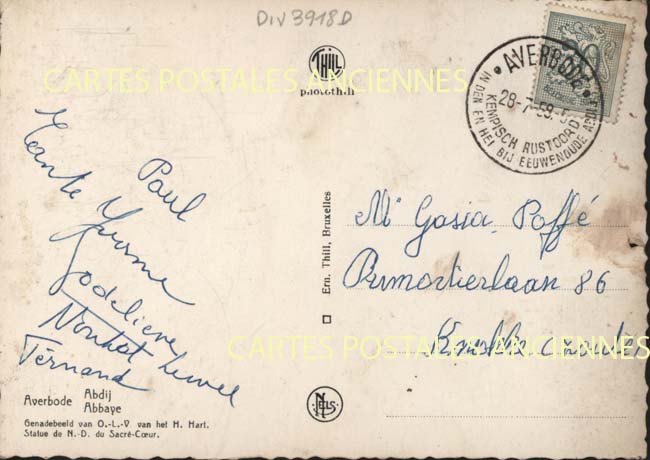 Div 3918D
THILL
photothill
CARTES POSTALES ANCIENNES
AVERBODE
28-7-59
KEMPISCH RUSTOORD
IN DEN EN HEI BIJ EEUWENOUDE ABDIJ
Paul
Tante Yvonne
Godelieve
Fernand
Ern. Thill, Bruxelles
Gosia Poffé
Dumortierlaan 86
Knokke
CARTES POSTALES ANCIENNES
Averbode Abdij
Abbaye
Genadebeeld van O.-L.-V van het H. Hart.
Statue de N.-D. du Sacré-Cœur.
NELS